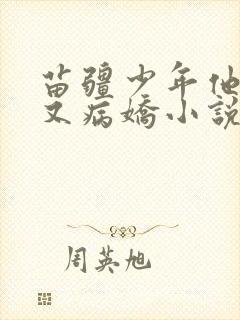 苗疆少年他
又病嬌小說
周英旭